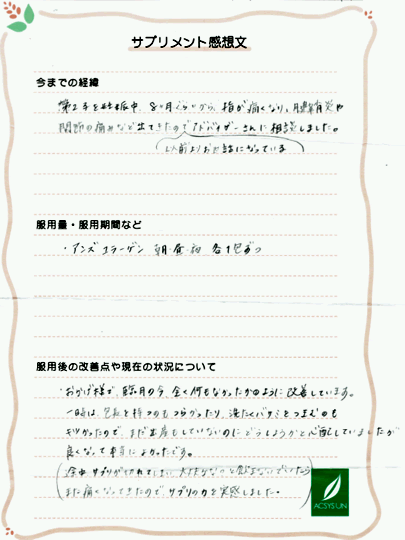 サプリメント感想文
今までの経緯
第2子を妊娠中、8ヶ月くらいから、指が痛くなり、腱鞘炎や
関節の痛みなど出てきたのでアドバイザーさんに相談しました。
(以前よりお世話になっている)
服用量・服用期間など
・アンズコラーゲン 朝・昼・夜 各1包ずつ
服用後の改善点や現在の状況について
・おかげ様で、臨月の今、全く何もなかったかのように改善しています。
一時は、包丁を持つのもつらかったり、洗たくバサミをつまむのも
キツかったので、まだ出産もしていないのにどうしようかと心配していましたが
良くなって本当によかったです。
(途中サプリが切れてしまい、大丈夫かなと飲まないでいたら
また痛くなってきたので、サプリの力を実感しました。)
ACSYSUN